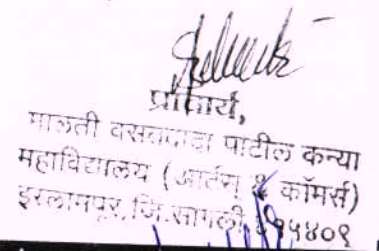 प्राचार्य,
मालती वसंतदादा पाटील कन्या
महाविद्यालय (आर्टस् & कॉमर्स)
इस्लामपूर, जि.सांगली ४१५४०९